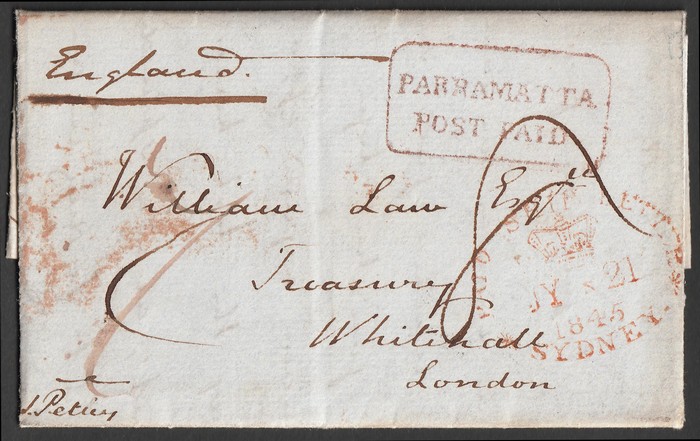 England.
PARRAMATTA
POST PAID
William Law Esqre
Treasury
Whitehall
London
SHIP LETTERS
JY 21
1845
SYDNEY